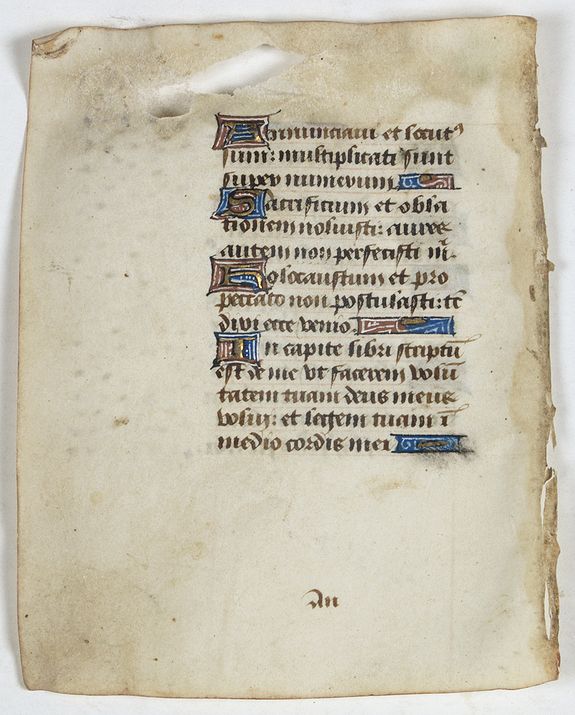 Annunciaui et locutꝰ
sum: multiplicati sunt
super numerum
Sacrificium et obla
tionem noluisti: aures
autem non perfecisti m̄.
Holocaustum et pro
peccato non postulasti: tc̄
dixi ecce venio
In capite libri scriptū
est de me vt facerem volū
tatem tuam deus meus
volui: et legem tuam ī
medio cordis mei
An